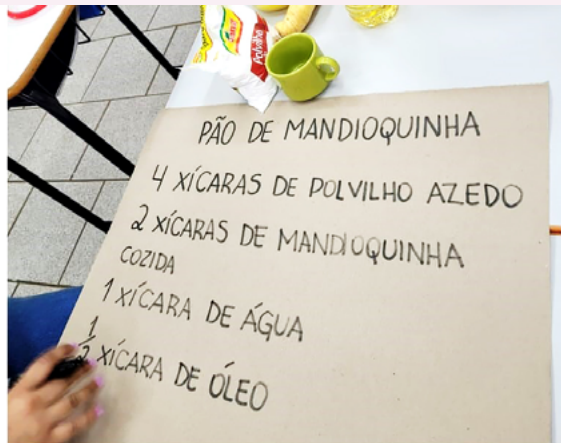 Polvilho
PÃO DE MANDIOQUINHA
4 XÍCARAS DE POLVILHO AZEDO
2 XÍCARAS DE MANDIOQUINHA
COZIDA
1 XÍCARA DE ÁGUA
1
2 XÍCARA DE ÓLEO